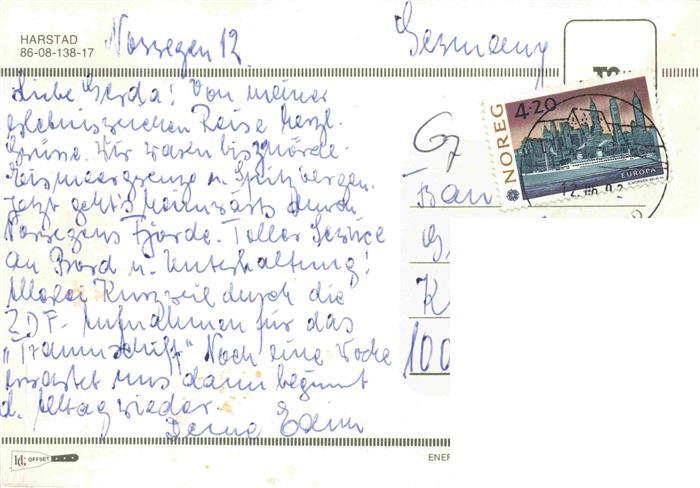 HARSTAD
86-08-138-17
Norwegen 12.
Germany
TO
Liebe Gerda! Von meiner
erlebnisreichen Reise herzl.
Grüsse. Wir waren bis z. nördl.
Eismeergrenze u. Spitzbergen.
Jetzt geht's heimwärts durch
Norwegens Fjorde. Toller Service
an Bord u. Unterhaltung!
Allerlei Kurzweil durch die
ZDF-Aufnahmen für das
"Traumschiff" Noch eine Woche
erwartet uns dann beginnt
d. Alltag wieder.
Deine
NOREG
4.20
EUROPA
12.06.92
Frau
G
K
100
Id: OFFSET
ENER